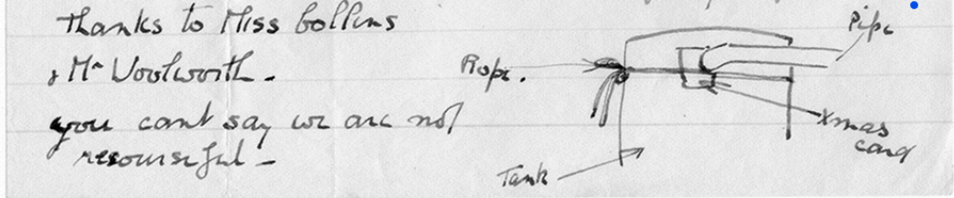 thanks to Miss Collins
& Mr Woolworth.
you cant say we are not
resourseful -
Rope.
Pipe
Xmas
card
Tank